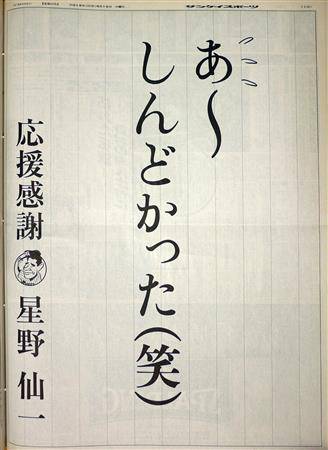 サンケイスポーツ
あ〜
しんどかった(笑)
応援感謝 星野 仙一